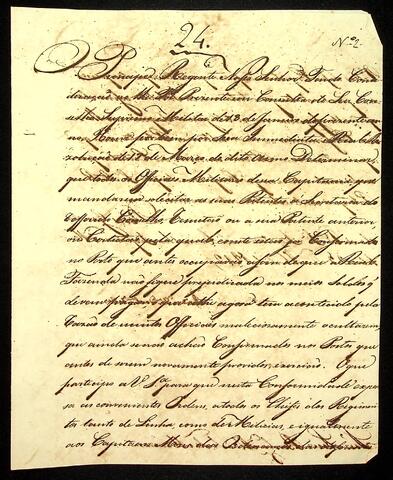 24.
Nº 2
O Principe Regente Nosso Senhor Tendo Con
sideração ao que lhe foi Prezente em Consulta do Seu Con
selho Supremo Militar de 13 de Janeiro do corrente an
no Houve por bem por Sua Immediata Real Re
zolução de 18 de Março do dito anno Determinar
que todos os Officiaes Militares dessa Capitania, que
mandarem solicitar as suas Patentes á Secretaria do
dito Conselho, remetão a sua Patente anterior
ou Certidão pela qual conste estar já Confirmado
no Posto que antes occupava, afim de que a Real
Fazenda não fique prejudicada no meio Soldo q̃
devem pagar, como até agora tem acontecido pela
razão de muitos Officiaes maliciosamente occultarem,
que ainda se não achão Confirmados nos Postos que
antes de serem novamente providos, exercião. O que
participo a V. Sª para que nesta Conformidade expe
ça as convenientes Ordens, a todos os Cheffes dos Regimen
tos tanto de Linha, como de Milicias, e igualmente
aos Capitaens Móres das Ordenanças das differentes